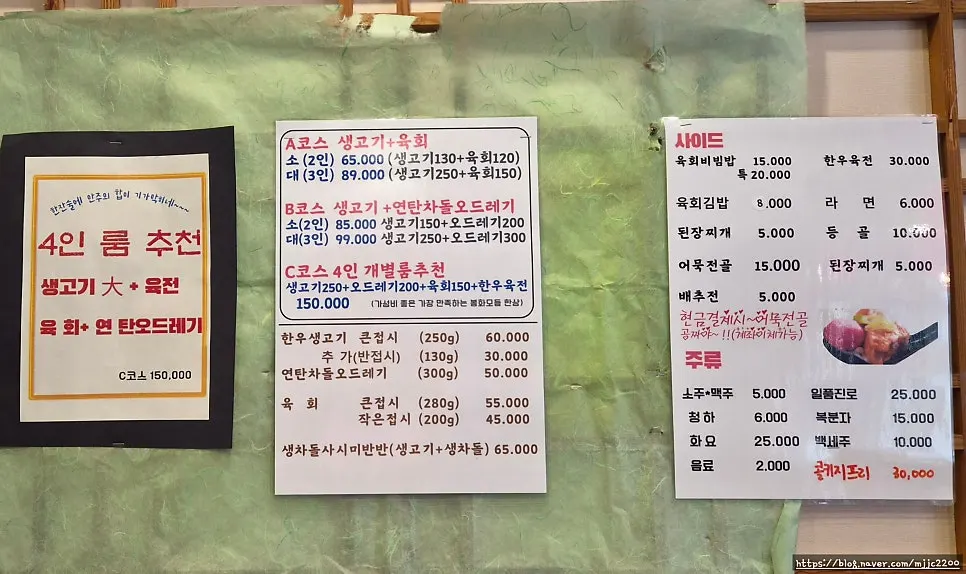 한잔술에 안주의 합이 기가막히네~~~
4인 룸 추천
생고기 大 + 육전
육 회+ 연 탄오드레기
C코스 150,000
A코스 생고기+육회
소 (2인) 65.000 (생고기130+육회120)
대 (3인) 89.000 (생고기250+육회150)
B코스 생고기 +연탄차돌오드레기
소(2인) 85.000 생고기150+오드레기200
대(3인) 99.000 생고기250+오드레기300
C코스 4인 개별룸추천
생고기250+오드레기200+육회150+한우육전
150.000 (가성비 좋은 가장 만족하는 봉화모듬 한상)
한우생고기 큰접시 (250g) 60.000
추 가(반접시) (130g) 30.000
연탄차돌오드레기 (300g) 50.000
육 회 큰접시 (280g) 55.000
작은접시 (200g) 45.000
생차돌사시미반반(생고기+생차돌) 65.000
사이드
육회비빔밥 15.000 한우육전 30.000
특 20.000
육회김밥 8,000 라 면 6.000
된장찌개 5.000 등 골 10.000
어묵전골 15.000 된장찌개 5.000
배추전 5.000
현금결제시~어묵전골
공짜야~!!(계좌이체가능)
주류
소주*맥주 5.000 일품진로 25.000
청하 6.000 복분자 15.000
화요 25.000 백세주 10.000
음료 2.000 콜키지프리 30,000
https://blog.naver.com/mjjc2200